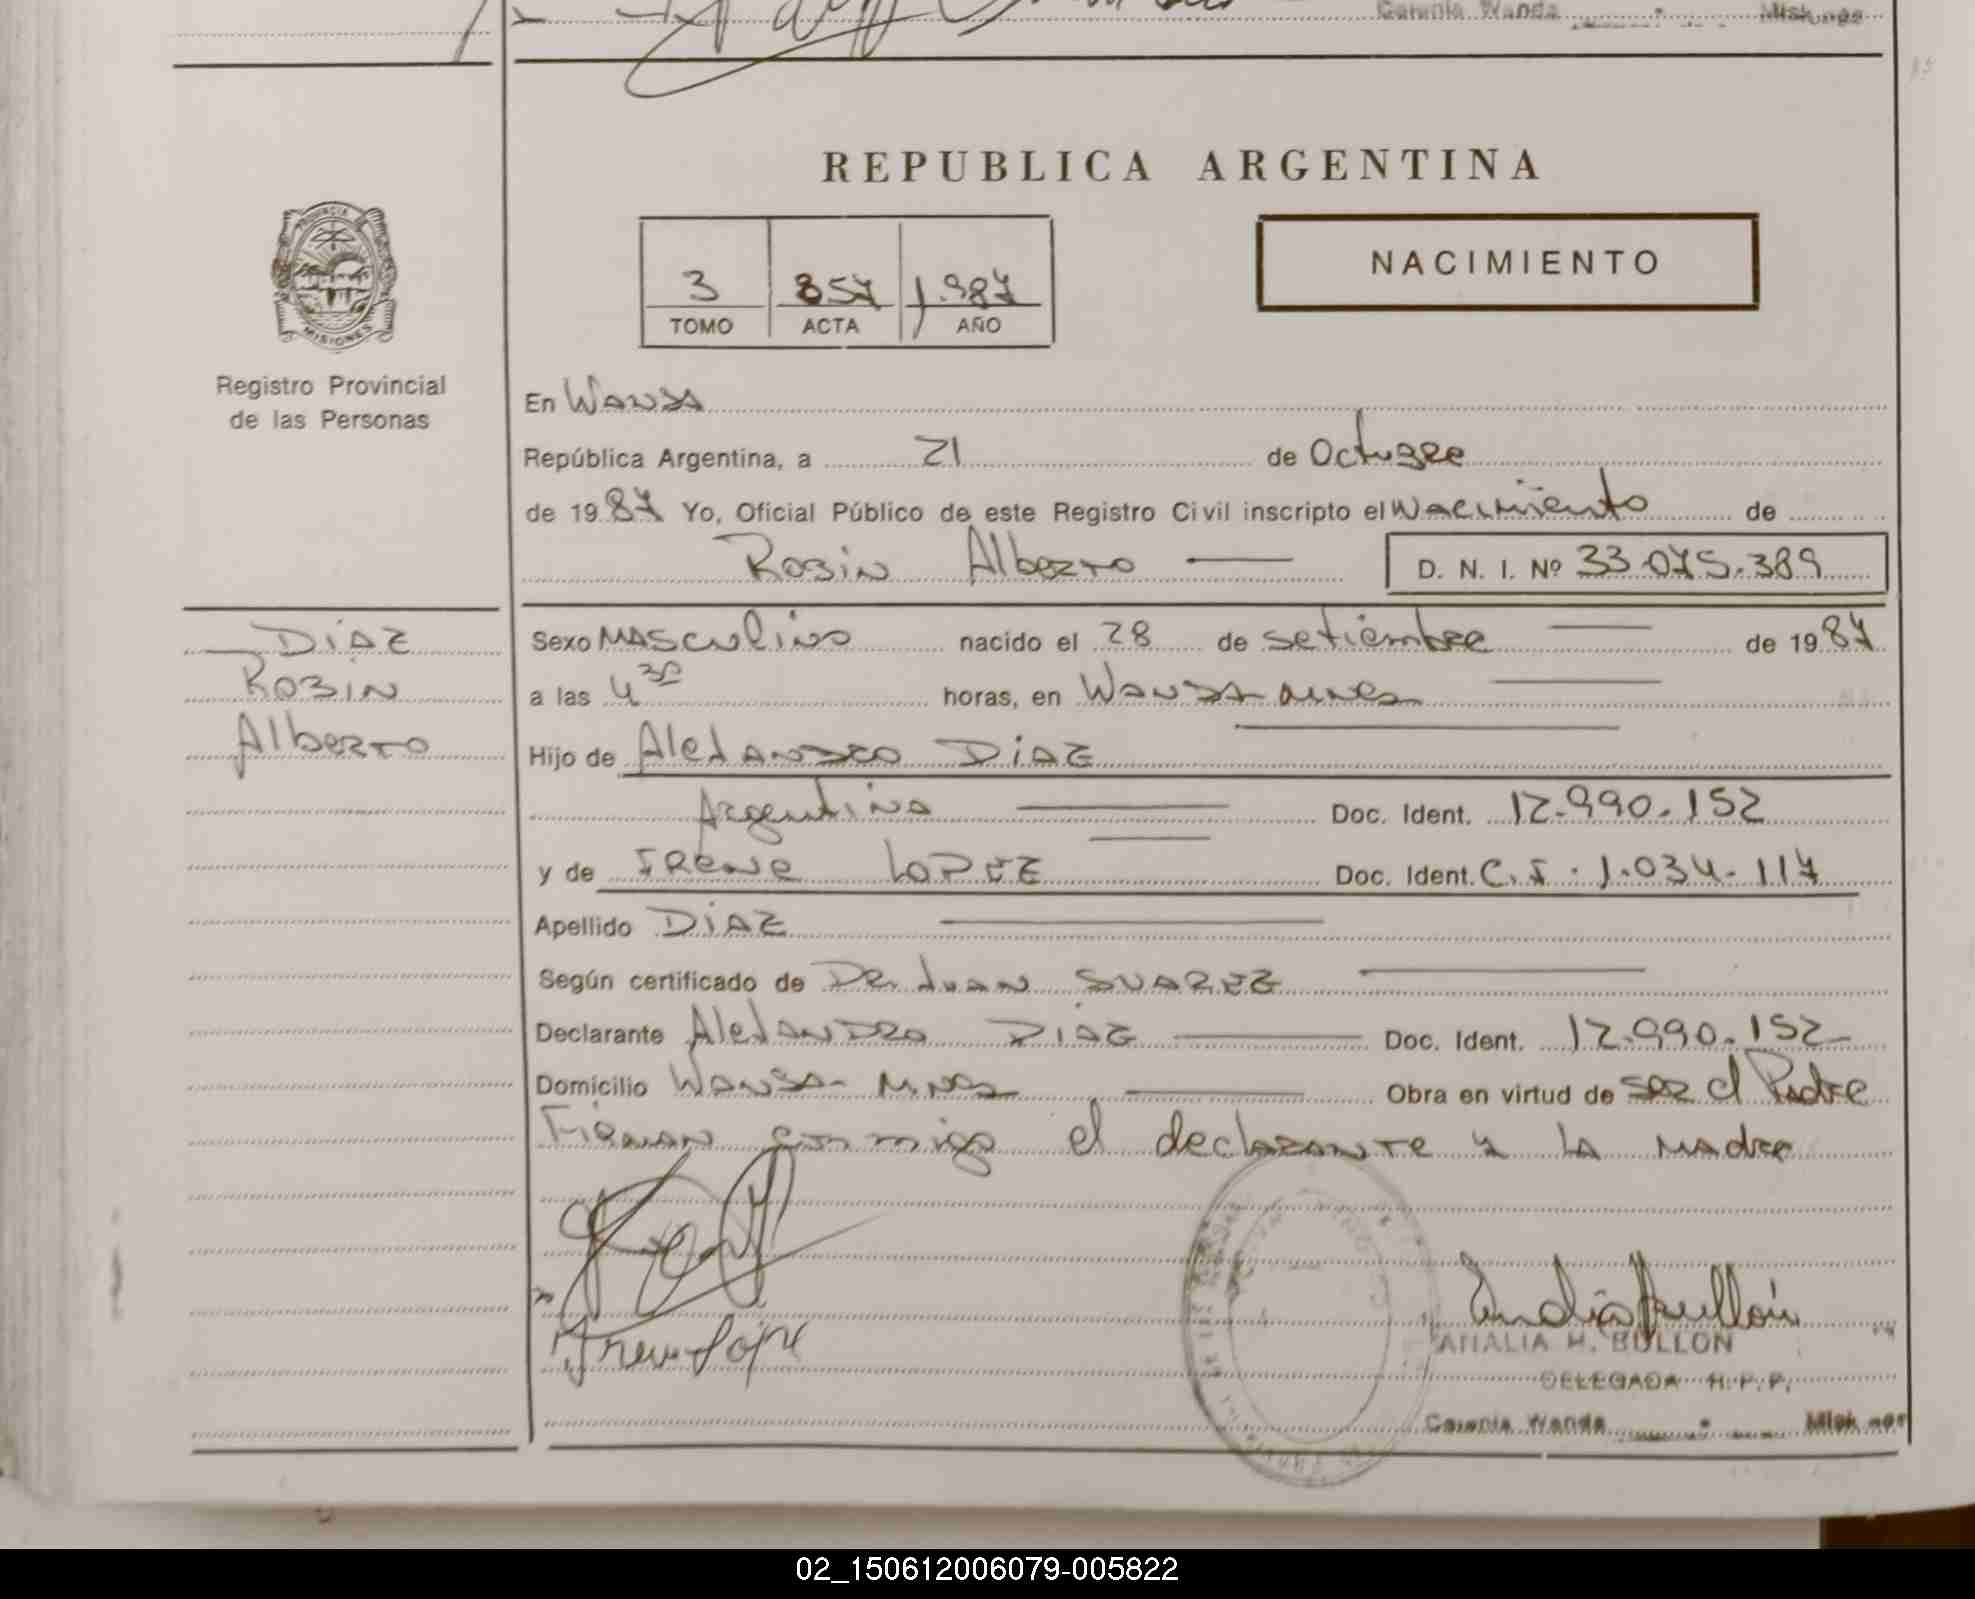 Colonia Wanda Misiones
REPUBLICA ARGENTINA
PROVINCIA
MISIONES
Registro Provincial
de las Personas
3 857 1.987
TOMO ACTA AÑO
NACIMIENTO
En Wanda
República Argentina, a 21 de Octubre
de 1987 Yo, Oficial Público de este Registro Civil inscripto el Nacimiento de
Robin Alberto D. N. I. Nº 33.075.389
Diaz
Robin
Alberto
Sexo Masculino nacido el 28 de setiembre de 1987
a las 4 30 horas, en Wanda
Hijo de Alejandro Diaz
Argentino Doc. Ident. 12.990.152
y de Irene Lopez Doc. Ident. C.I. 1.034.117
Apellido Diaz
Según certificado de Dr. Juan Suarez
Declarante Alejandro Diaz Doc. Ident. 12.990.152
Domicilio Wanda - Mnes Obra en virtud de ser el Padre
Firman conmigo el declarante y la Madre
Irene Lopez
ANALIA H. BULLON
DELEGADA R.P.P.
Colonia Wanda Misiones
02_150612006079-005822